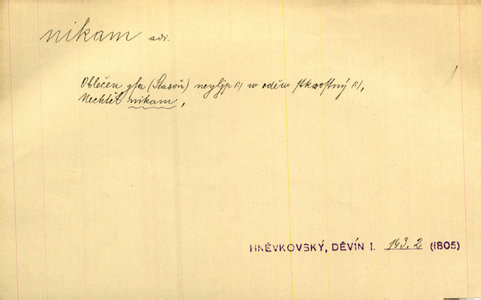 nikam adv.
Oblečen gsa (Stasoň) neylýp w oděw skwostný,
Nechtěl nikam,
HNĚVKOVSKÝ, DĚVÍN I. 143.2 (1805)